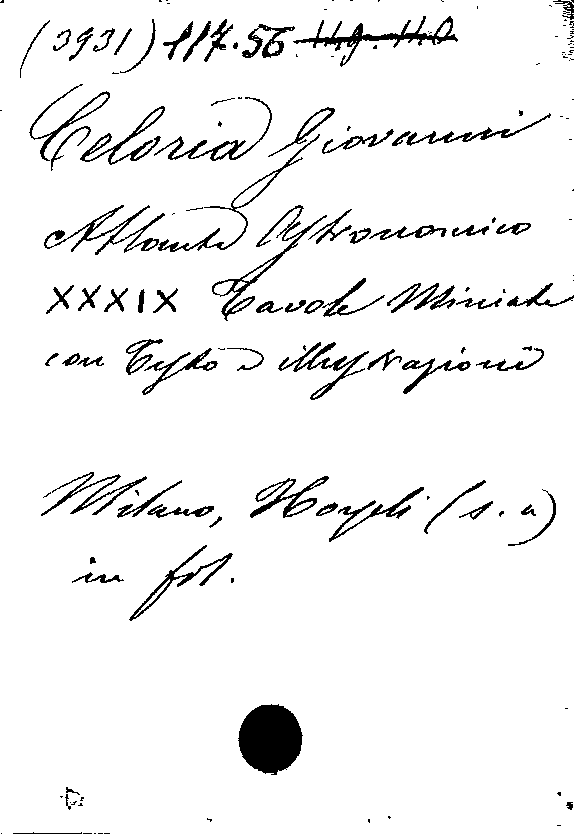 (3931) 117.56 119.110
Celoria Giovanni
Atlante Astronomico
XXXIX Tavole Miniate
con Testo e illustrazioni
Milano, Hoepli (s.a)
in fol.